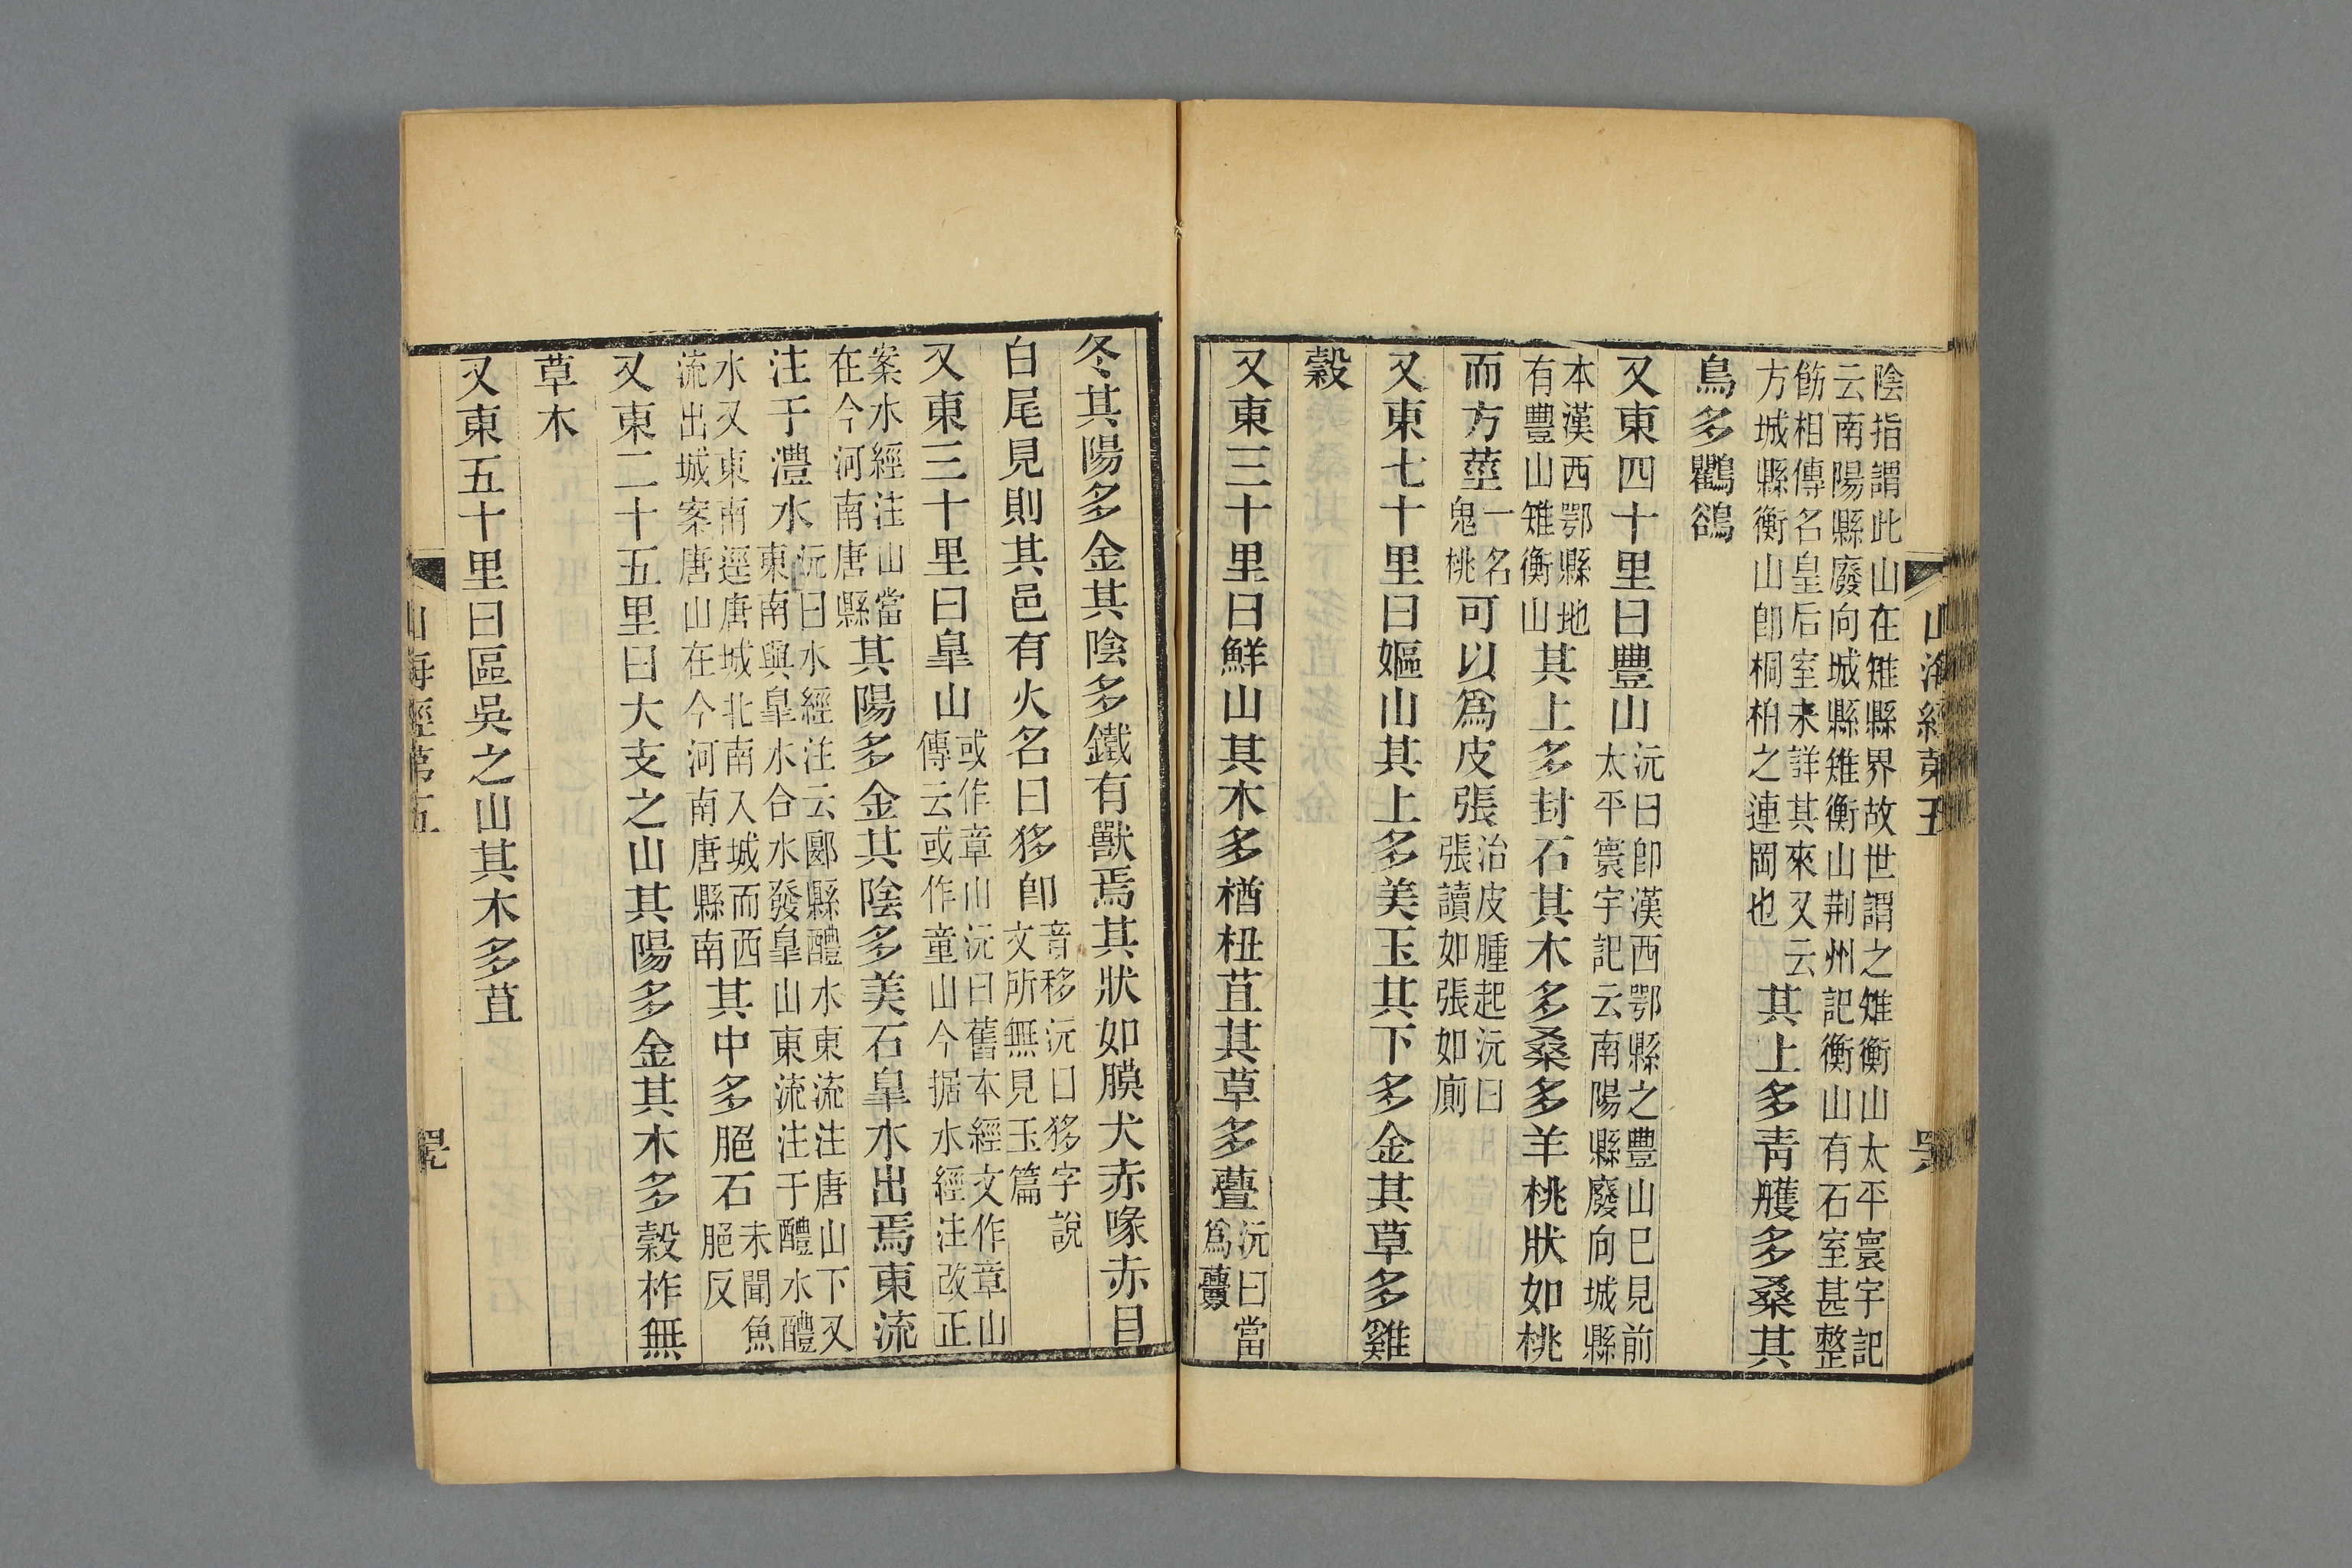 山海經第五
陰指謂此山在雉縣界故世謂之雉衡山太平寰宇記
云南陽縣廢向城縣雉衡山荆州記衡山有石室甚整
飭相傳名皇后室未詳其來又云
方城縣衡山卽桐柏之連岡也
其上多青雘多桑其
鳥多鸜鵒
又東四十里曰豐山
沅曰卽漢西鄂縣之豐山巳見前
太平寰宇記云南陽縣廢向城縣
本漢西鄂縣地
有豐山雉衡山
其上多封石其木多桑多羊桃狀如桃
而方莖
一名
鬼桃
可以爲皮張
治皮腫起沅曰
張讀如張如廁
又東七十里曰嫗山其上多美玉其下多金其草多雞
穀
又東三十里曰鮮山其木多楢杻苴其草多
沅曰當
爲虋
冬其陽多金其陰多鐵有獸焉其狀如膜犬赤喙赤目
白尾見則其邑有火名曰㹭卽
音移沅曰㹭字說
文所無見玉篇
又東三十里曰皐山
或作章山沅曰舊本經文作章山
傳云或作童山今据水經注改正
案水經注山當
在今河南唐縣
其陽多金其陰多美石皐水出焉東流
注于澧水
沅曰水經注云郾縣醴水東流注唐山下又
東南與皐水合水發皐山東流注于醴水醴
水又東南逕唐城北南入城而西
流出城案唐山在今河南唐縣南
其中多脃石
未聞魚
脃反
又東二十五里曰大支之山其陽多金其木多穀柞無
草木
又東五十里曰區吳之山其木多苴
山海經第五